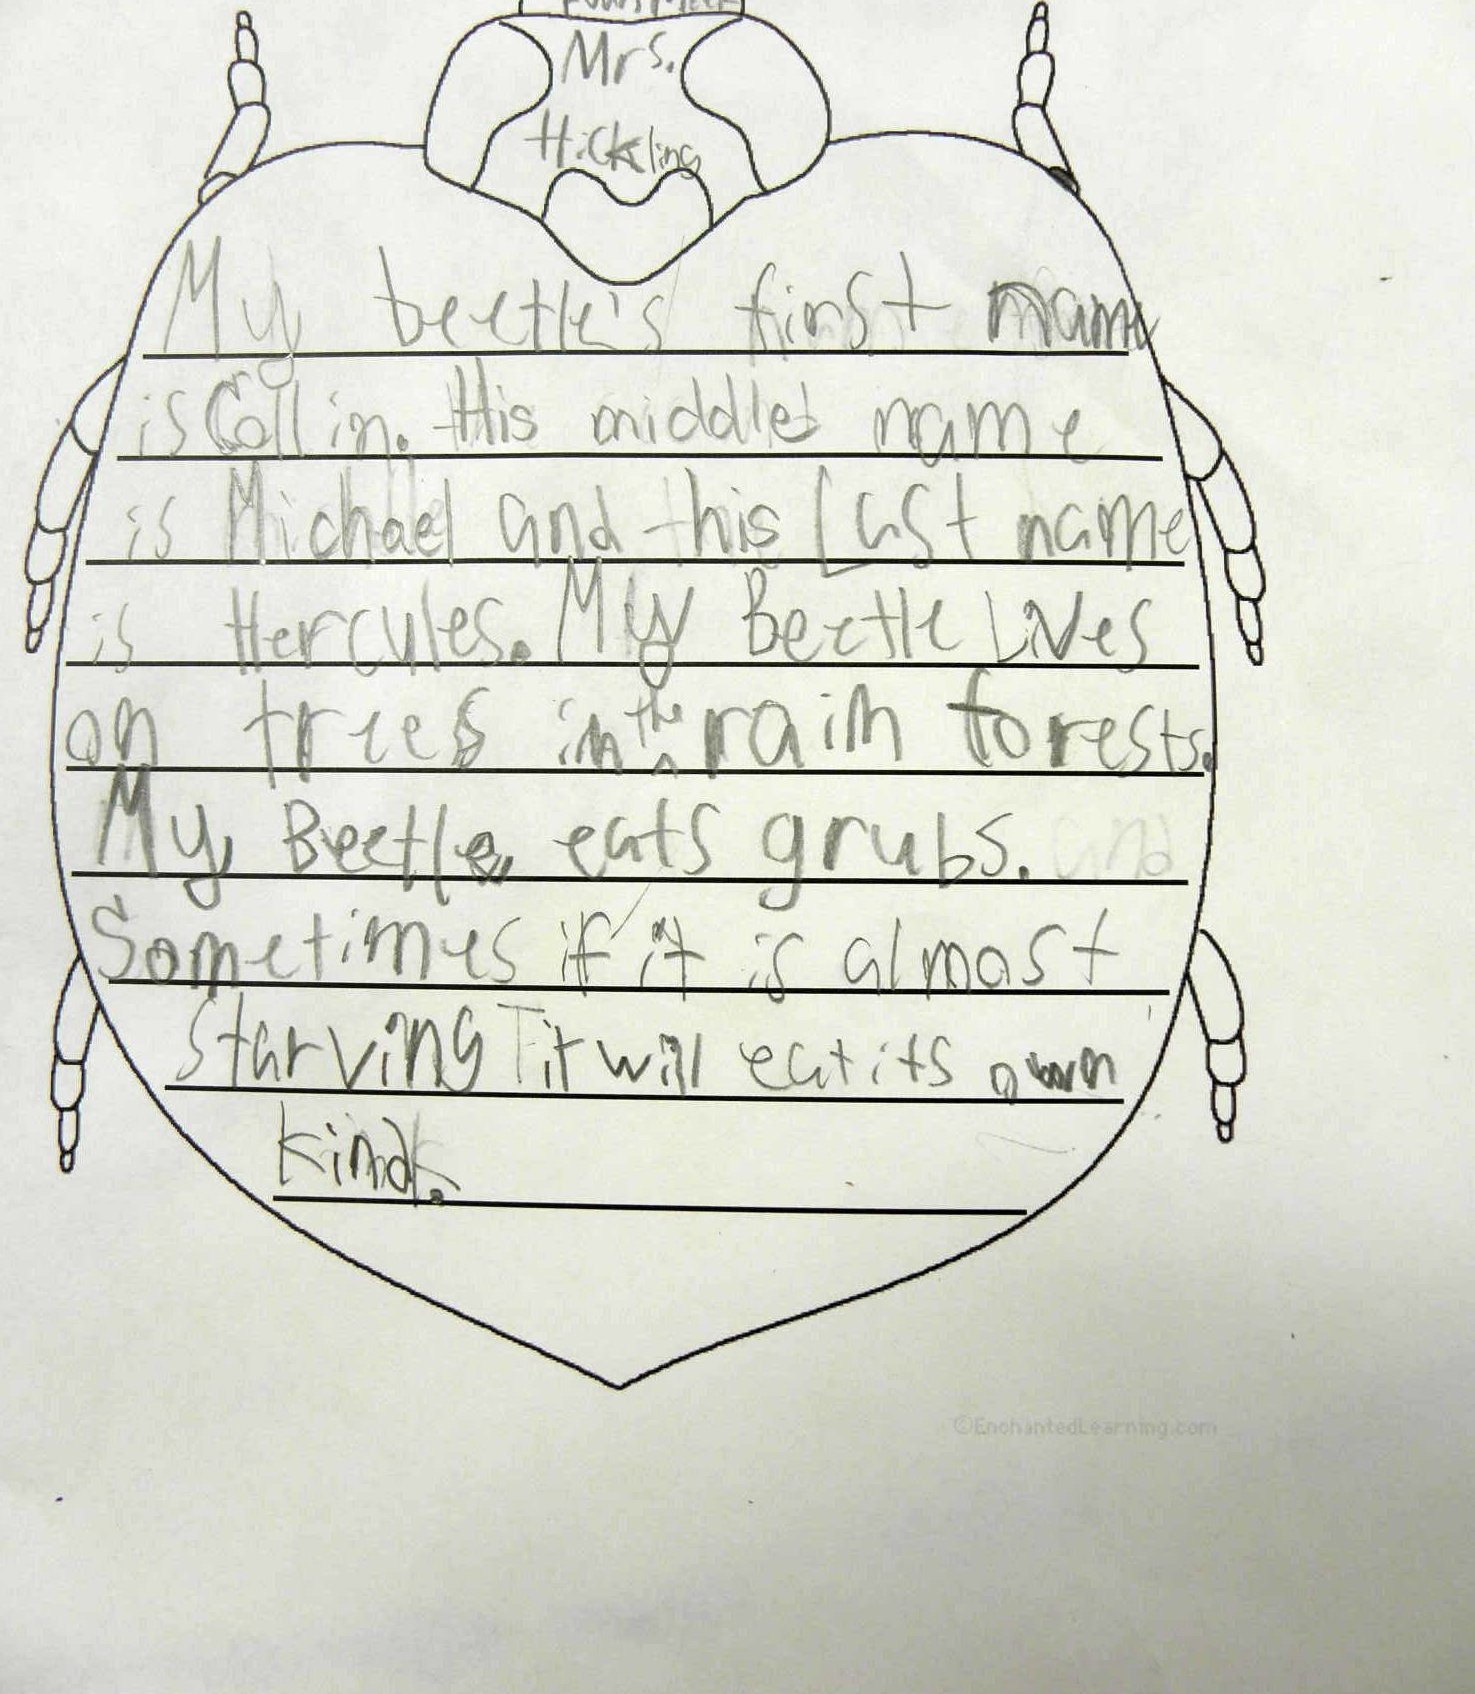 Mrs.
Hickling
My beetle's first name
is Collin. His middle name
is Michael and his Last name
is Hercules. My Beetle Lives
on trees in the rain forests.
My Beetle eats grubs. and
Sometimes if it is almost
starving it will eat its own
kind.
©EnchantedLearning.com